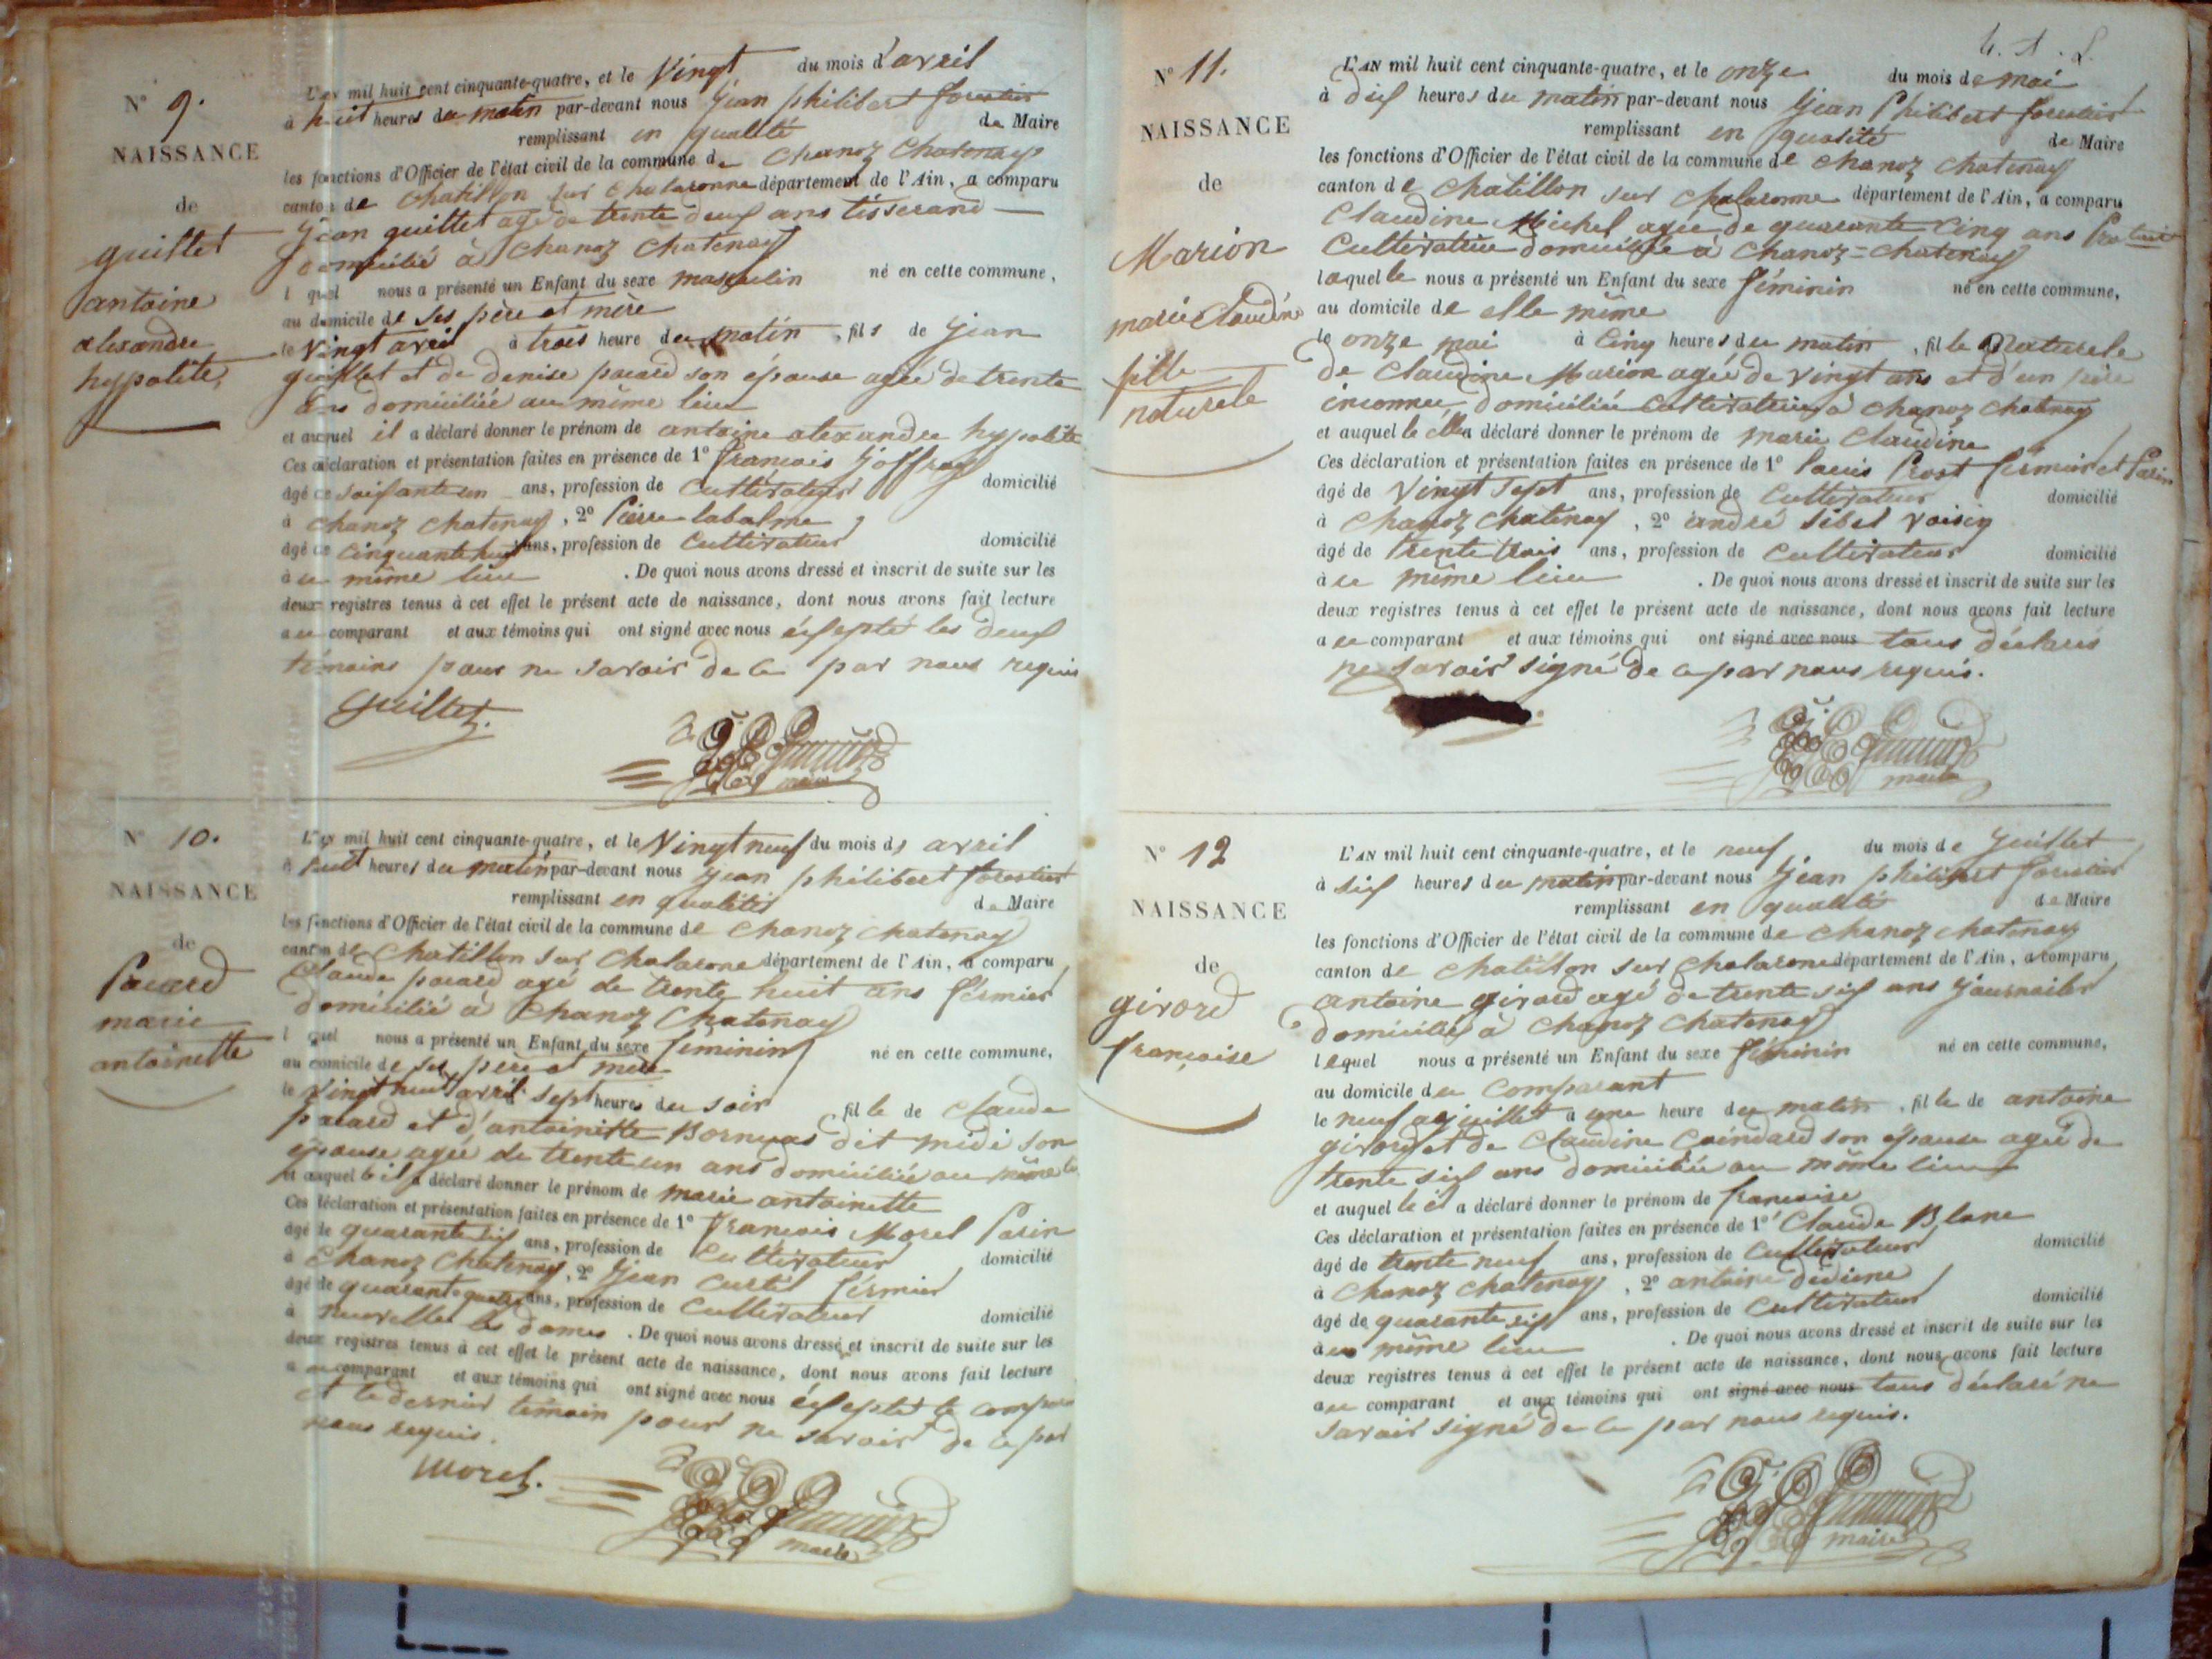 N° 9.
NAISSANCE
de
guillet
antoine
alexandre
hypolite
L'AN mil huit cent cinquante-quatre, et le Vingt du mois d'avril
à huit heures du matin par-devant nous Jean philibert forestier
remplissant en qualité de Maire
les fonctions d'Officier de l'état civil de la commune de Chanoz Chatenay
canton de Chatillon sur Chalaronne département de l'Ain, a comparu
Jean guillet agé de trente deux ans tisserand
domicilié à Chanoz Chatenay
lequel nous a présenté un Enfant du sexe masculin né en cette commune,
au domicile de ses père et mère
le Vingt avril à trois heure du matin, fils de Jean
guillet et de denise pacard son épouse agée de trente
ans domiciliée au même lieu
et auquel il a déclaré donner le prénom de antoine alexandre hypolite
Ces déclaration et présentation faites en présence de 1° françois Joffray
âgé de soixante un ans, profession de Cultivateur domicilié
à Chanoz Chatenay, 2° Pierre labalme
âgé de Cinquante huit ans, profession de Cultivateur domicilié
au même lieu. De quoi nous avons dressé et inscrit de suite sur les
deux registres tenus à cet effet le présent acte de naissance, dont nous avons fait lecture
au comparant et aux témoins qui ont signé avec nous éxsepté les deux
témoins pour ne savoir de ce par nous requis
Guillet.
maire
N° 10.
NAISSANCE
de
Pacard
marie
antoinette
L'AN mil huit cent cinquante-quatre, et le Vingt neuf du mois d' avril
à huit heures du matin par-devant nous Jean philibert forestier
remplissant en qualité de Maire
les fonctions d'Officier de l'état civil de la commune de Chanoz Chatenay
canton de Chatillon sur Chalarone département de l'Ain, a comparu
Claude pacard agé de trente huit ans fermier
domicilié à Chanoz Chatenay
lequel nous a présenté un Enfant du sexe féminin né en cette commune,
au domicile de ses père et mère
le Vingt huit avril sept heures du soir fille de Claude
pacard et d'antoinette dit midi son
épouse agée de trente un ans domiciliée au même lieu
et auquel le il a déclaré donner le prénom de marie antoinette
Ces déclaration et présentation faites en présence de 1° françois Morel
âgé de quarante six ans, profession de Cultivateur domicilié
à Chanoz Chatenay, 2° Jean Curtil fermier
âgé de quarante quatre ans, profession de Cultivateur domicilié
à neuville les dames. De quoi nous avons dressé et inscrit de suite sur les
deux registres tenus à cet effet le présent acte de naissance, dont nous avons fait lecture
au comparant et aux témoins qui ont signé avec nous éxsepté le comparant
et le dernier témoin pour ne savoir de ce par
nous requis.
Morel.
maire
N° 11.
NAISSANCE
de
Marion
marie Claudine
fille
naturele
L'AN mil huit cent cinquante-quatre, et le onze du mois de mai
à dix heures du matin par-devant nous Jean Philibert forestier
remplissant en qualité de Maire
les fonctions d'Officier de l'état civil de la commune de Chanoz Chatenay
canton de Chatillon sur Chalaronne département de l'Ain, a comparu
Claudine Michel agée de quarante Cinq ans
Cultivatrice domiciliée à Chanoz=Chatenay
laquelle nous a présenté un Enfant du sexe féminin né en cette commune,
au domicile de elle même
le onze mai à Cinq heures du matin, fille Naturele
de Claudine Marion agée de Vingt ans et d'un père
inconnu domiciliée Cultivatrice à Chanoz Chatenay
et auquel le elle a déclaré donner le prénom de marie Claudine
Ces déclaration et présentation faites en présence de 1° Louis Prost fermier et
âgé de Vingt Sept ans, profession de Cultivateur domicilié
à Chanoz Chatenay, 2° andré Sibel voisin
âgé de trente trois ans, profession de Cultivateur domicilié
au même lieu. De quoi nous avons dressé et inscrit de suite sur les
deux registres tenus à cet effet le présent acte de naissance, dont nous avons fait lecture
au comparant et aux témoins qui ont signé avec nous tous déclarés
ne savoir signé de ce par nous requis.
maire
N° 12
NAISSANCE
de
girord
françoise
L'AN mil huit cent cinquante-quatre, et le neuf du mois de Juillet
à six heures du matin par-devant nous Jean philibert forestier
remplissant en qualité de Maire
les fonctions d'Officier de l'état civil de la commune de Chanoz Chatenay
canton de Chatillon sur Chalarone département de l'Ain, a comparu
antoine girord agé de trente six ans Journalier
domicilié à Chanoz Chatenay
lequel nous a présenté un Enfant du sexe féminin né en cette commune,
au domicile du Comparant
le neuf juillet à une heure du matin, fille de antoine
girord et de Claudine son épouse agée de
trente six ans domiciliée au même lieu
et auquel le il a déclaré donner le prénom de françoise
Ces déclaration et présentation faites en présence de 1° Claude Blanc
âgé de trente neuf ans, profession de Cultivateur domicilié
à Chanoz Chatenay, 2° antoine
âgé de quarante six ans, profession de Cultivateur domicilié
au même lieu. De quoi nous avons dressé et inscrit de suite sur les
deux registres tenus à cet effet le présent acte de naissance, dont nous avons fait lecture
au comparant et aux témoins qui ont signé avec nous tous déclaré ne
savoir signé de ce par nous requis.
maire